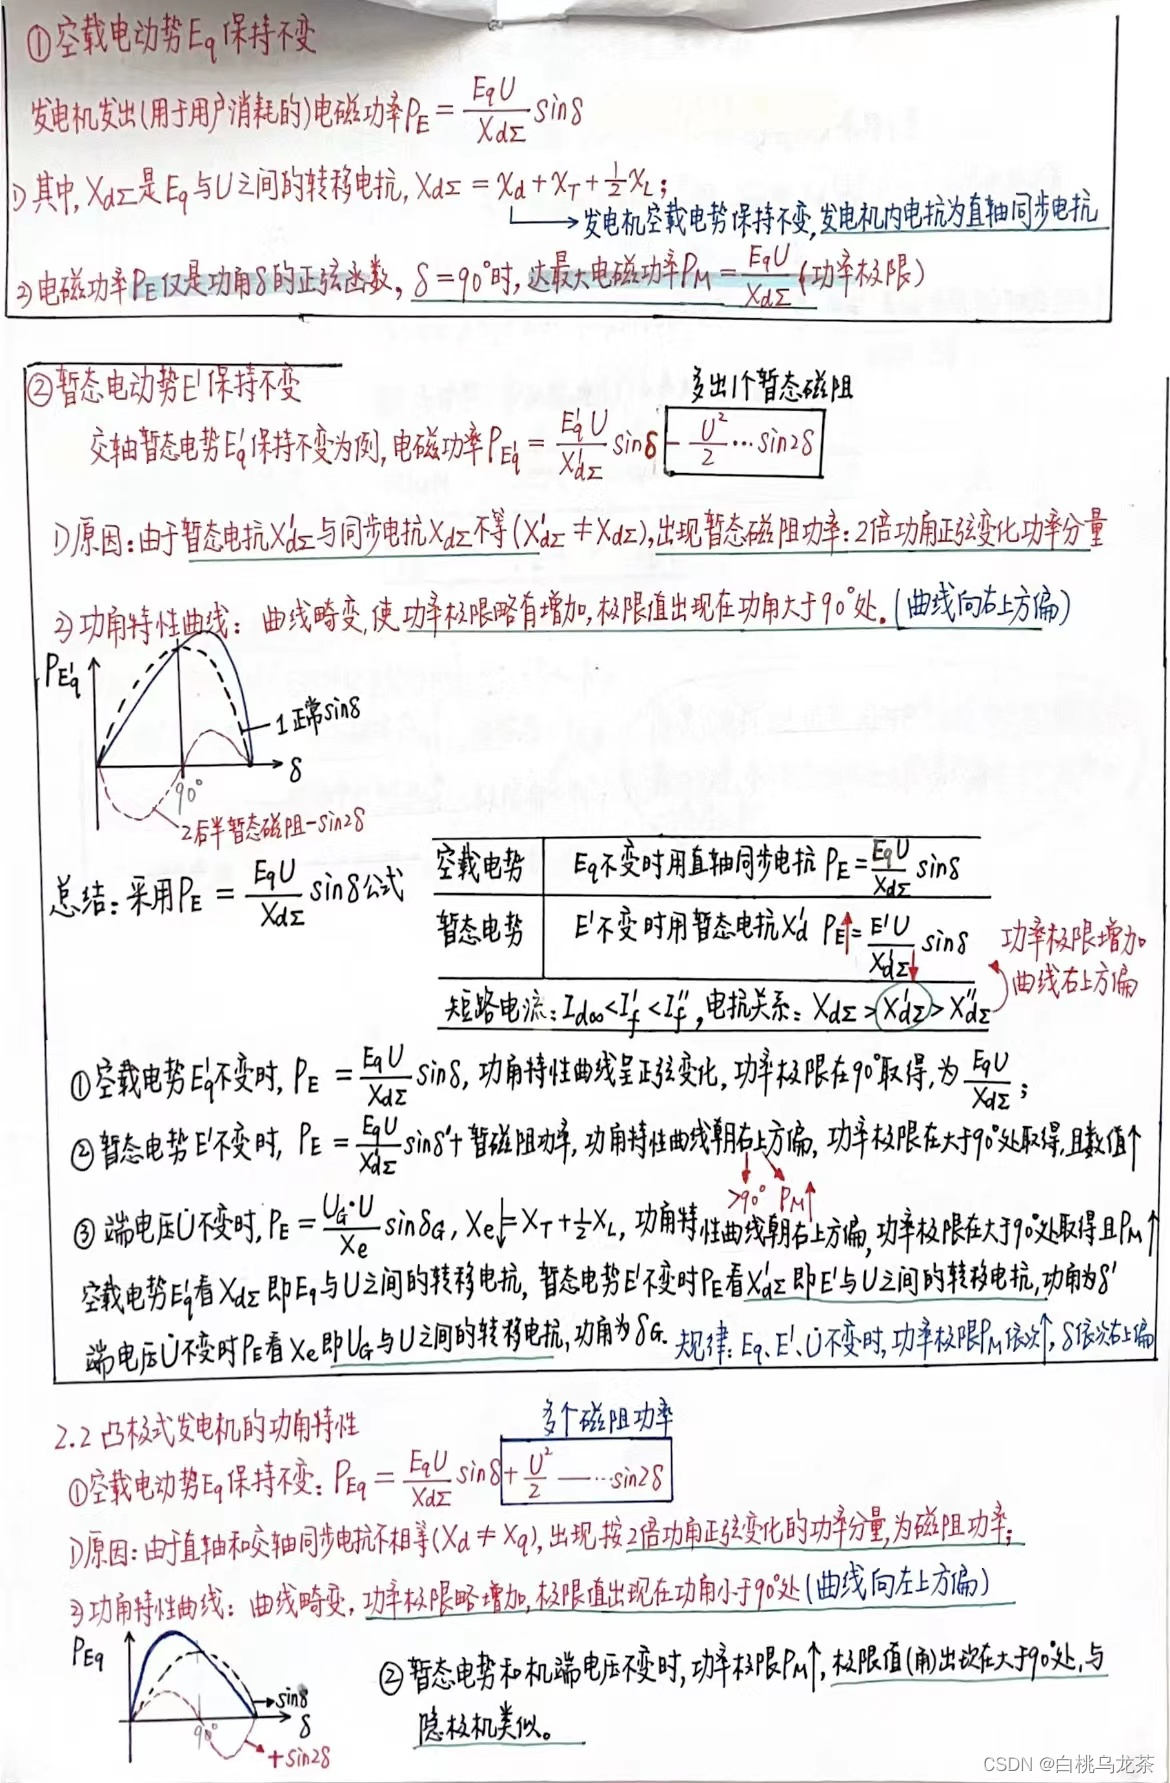 ①空载电动势Eq保持不变
发电机发出(用于用户消耗的)电磁功率PE = EqU/XdΣ sinδ
1)其中, XdΣ是Eq与U之间的转移电抗, XdΣ = Xd+XT+½XL;
发电机空载电势保持不变,发电机内电抗为直轴同步电抗
2)电磁功率PE仅是功角δ的正弦函数, δ=90°时, 达最大电磁功率PM = EqU/XdΣ (功率极限)
②暂态电动势E'保持不变
多出1个暂态磁阻
交轴暂态电势E'q保持不变为例, 电磁功率PE'q = E'qU/X'dΣ sinδ - U²/2 … sin2δ
1)原因:由于暂态电抗X'dΣ与同步电抗XdΣ不等(X'dΣ ≠ XdΣ),出现暂态磁阻功率:2倍功角正弦变化功率分量
2)功角特性曲线: 曲线畸变,使功率极限略有增加,极限值出现在功角大于90°处。(曲线向右上方偏)
PE'q
1正常sinδ
δ
90°
2后半暂态磁阻-sin2δ
总结:采用PE = EqU/XdΣ sinδ公式
空载电势 Eq不变时用直轴同步电抗 PE=EqU/XdΣ sinδ
暂态电势 E'不变时用暂态电抗X'd PE↑=E'U/X'dΣ↓ sinδ
功率极限增加
曲线右上方偏
短路电流: Id∞<I'f<I''f, 电抗关系: XdΣ>X'dΣ>X''dΣ
①空载电势E'q不变时, PE = EqU/XdΣ sinδ, 功角特性曲线呈正弦变化, 功率极限在90°取得,为 EqU/XdΣ;
②暂态电势E'不变时, PE = EqU/X'dΣ sinδ'+暂磁阻功率, 功角特性曲线朝右上方偏, 功率极限在大于90°处取得,且数值↑
>90° PM↑
③端电压U̇不变时, PE = UG·U/Xe sinδG, Xe↓=XT+½XL, 功角特性曲线朝右上方偏,功率极限在大于90°处取得且PM↑
空载电势E'q看XdΣ即Eq与U之间的转移电抗, 暂态电势E'不变时PE看X'dΣ即E'与U之间的转移电抗,功角为δ'
端电压U̇不变时PE看Xe即UG与U之间的转移电抗,功角为δG.
规律:Eq、E'、U̇不变时,功率极限PM依次↑, δ依次右上偏
2.2凸极式发电机的功角特性
多个磁阻功率
①空载电动势Eq保持不变: PEq = EqU/XdΣ sinδ + U²/2 —…sin2δ
1)原因:由于直轴和交轴同步电抗不相等(Xd ≠ Xq), 出现按2倍功角正弦变化的功率分量,为磁阻功率;
2)功角特性曲线: 曲线畸变, 功率极限略增加,极限值出现在功角小于90°处(曲线向左上方偏)
PEq
sinδ
δ
90°
+sin2δ
②暂态电势和机端电压不变时,功率极限PM↑, 极限值(角)出现在大于90°处,与
隐极机类似。
CSDN @白桃乌龙茶